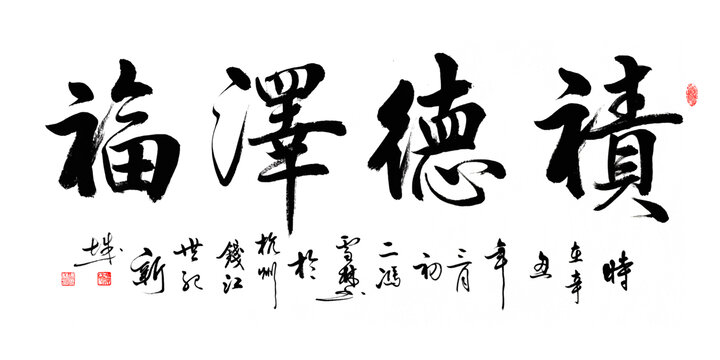 積德澤福
時在辛丑年二月初二馮雪林書於杭州錢江世紀新城